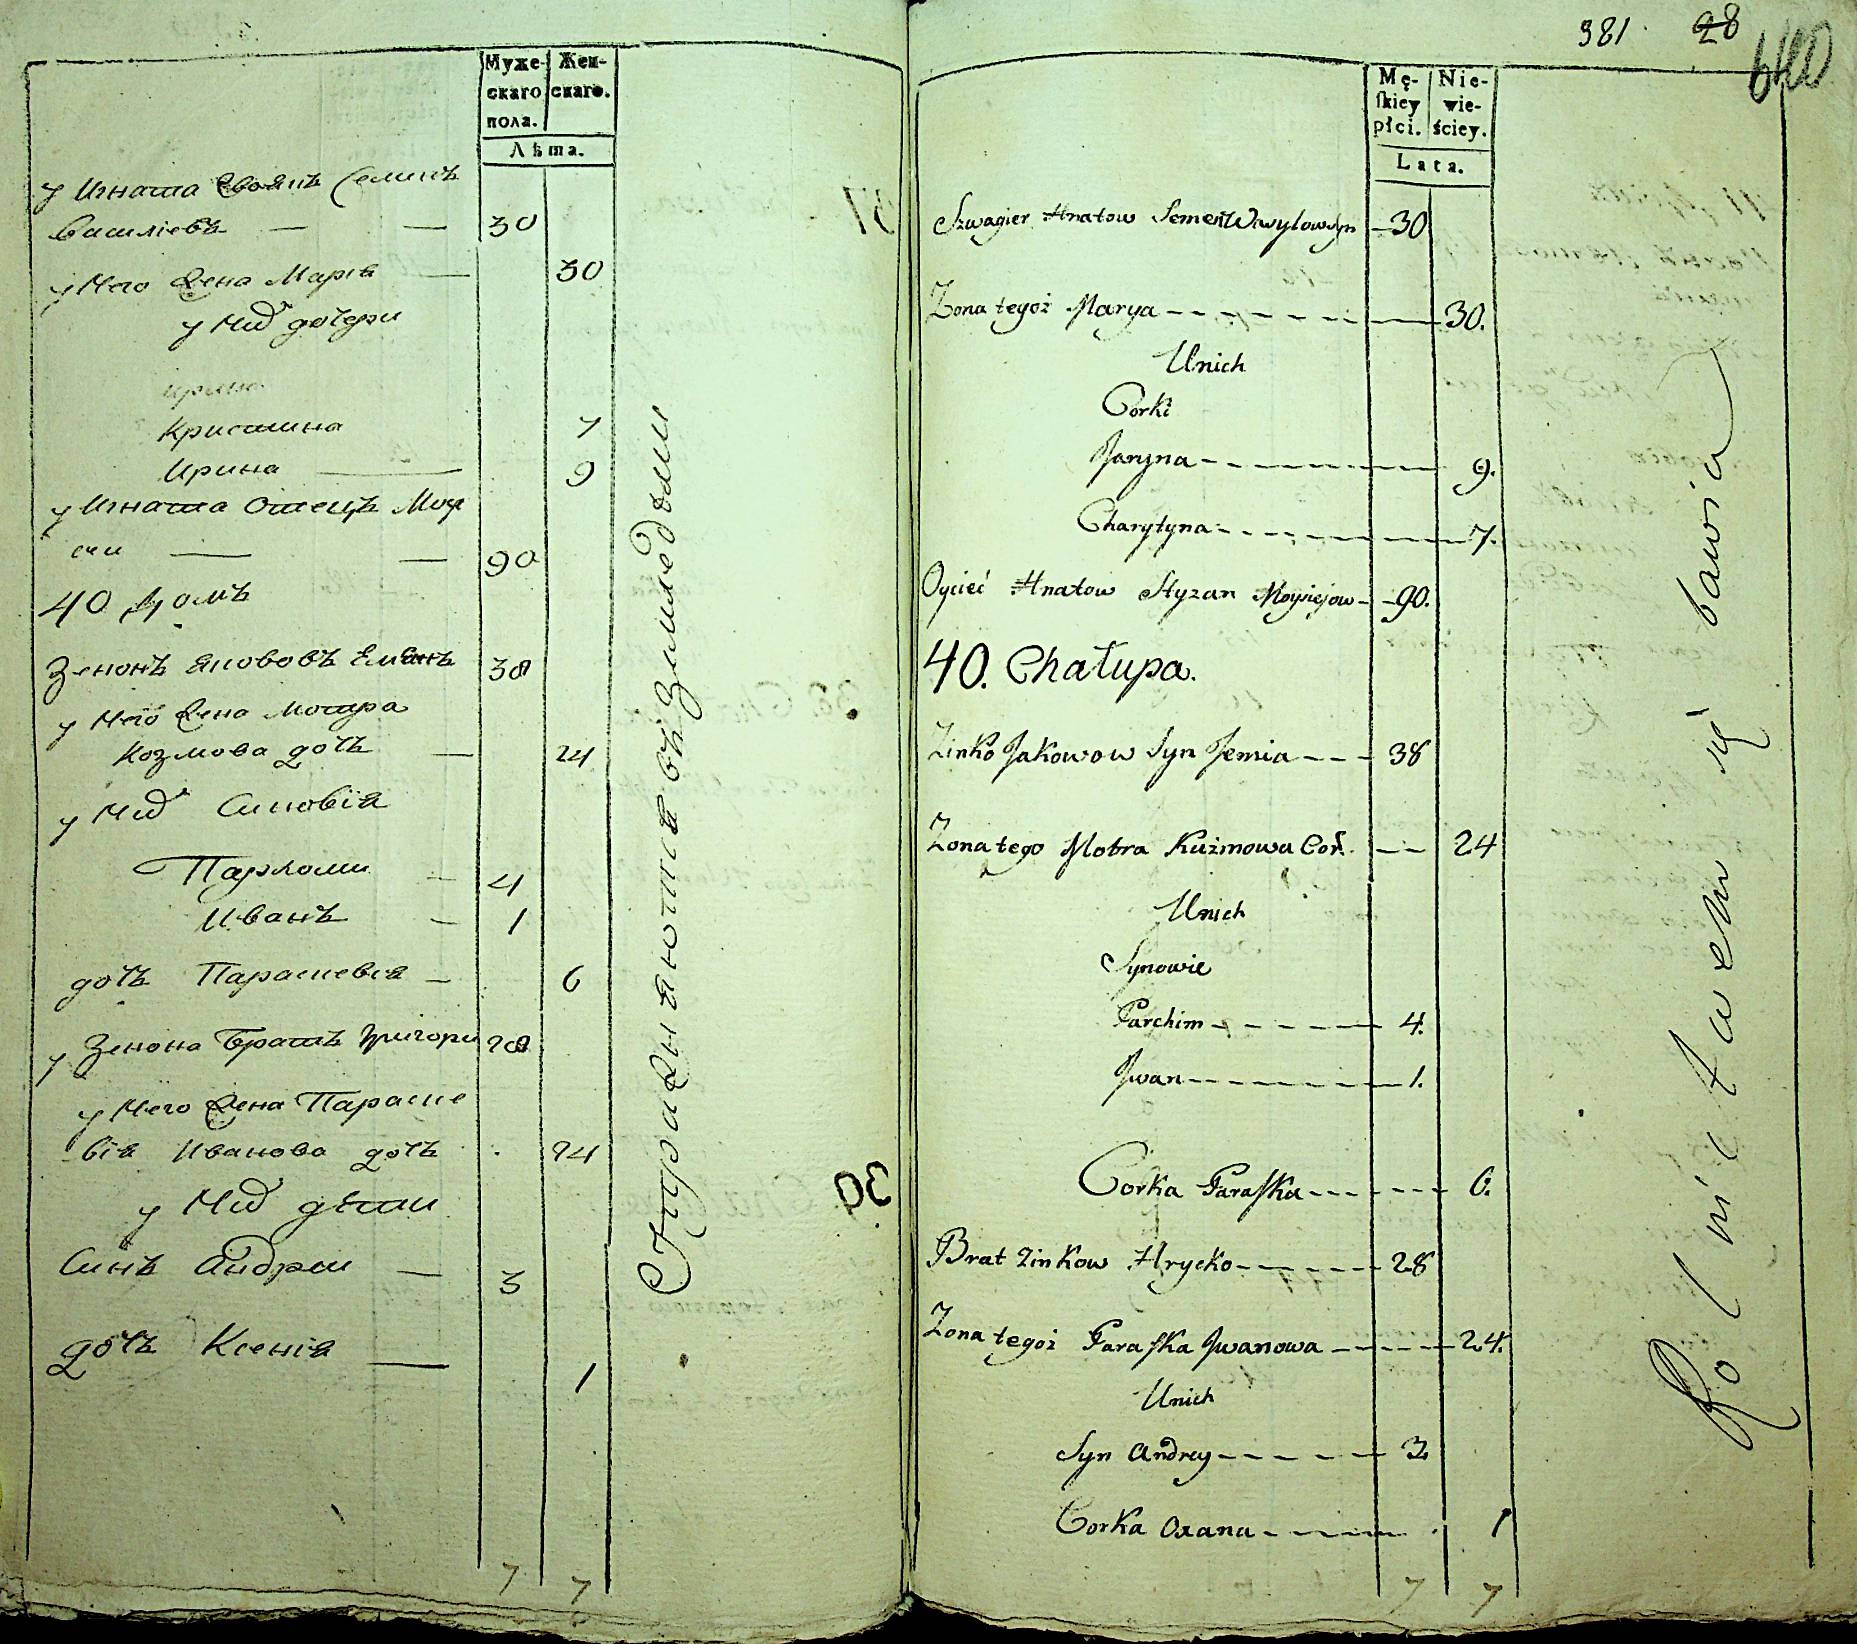 Муже-
скаго
пола.
Жен-
скаго.
Лѣта.
у Игната Своякъ Семинъ
Василіевъ — — 30
у Него Жена Марія — 30
у Них дочери
ирина
Кристина 7
Ирина — 9
у Игната Отецъ Мой
сии — — 90
40 Домъ
Зенонъ Якововъ 38
у Него Жена Мотра
Козмова дочъ — 24
у Них Синовія
Пархоми — 4
Иванъ — 1
дочъ Парасневія — 6
у Зенона Братъ Григори 28
у Него Жена Параске
вія Иванова дочъ 24
у Них дѣти
Синъ Андреи — 3
дочъ Ксенія — 1
7 7
Упражняютса въ Землѣдѣліи
381 28
640
Mę-
ſkiey
płci.
Nie-
wie-
ściey.
Lata.
Szwagier Hnatow Semen Wasylow Syn - 30
Zona tegoż Marya - - - - - - 30.
Unich
Corki
Jaryna - - - - - - 9.
Charytyna - - - - - - 7.
Oyciec Hnatow Styzan Moysiejow - - 90.
40. Chałupa.
Zinko Jakowow Syn Jemia - - - 38
Zona tego Motra Kuźmowa Cor. - - - 24
Unich
Synowie
Parchim - - - - - 4.
Jwan - - - - - - 1.
Corka Paraſka - - - - - - 6.
Brat Zinkow Hrycko - - - - - 28
Zona tegoż Paraſka Jwanowa - - - - - 24.
Unich
Syn Andrey - - - - - 3
Corka Oxana - - - - - 1
7 7
Rolnictwem się bawią